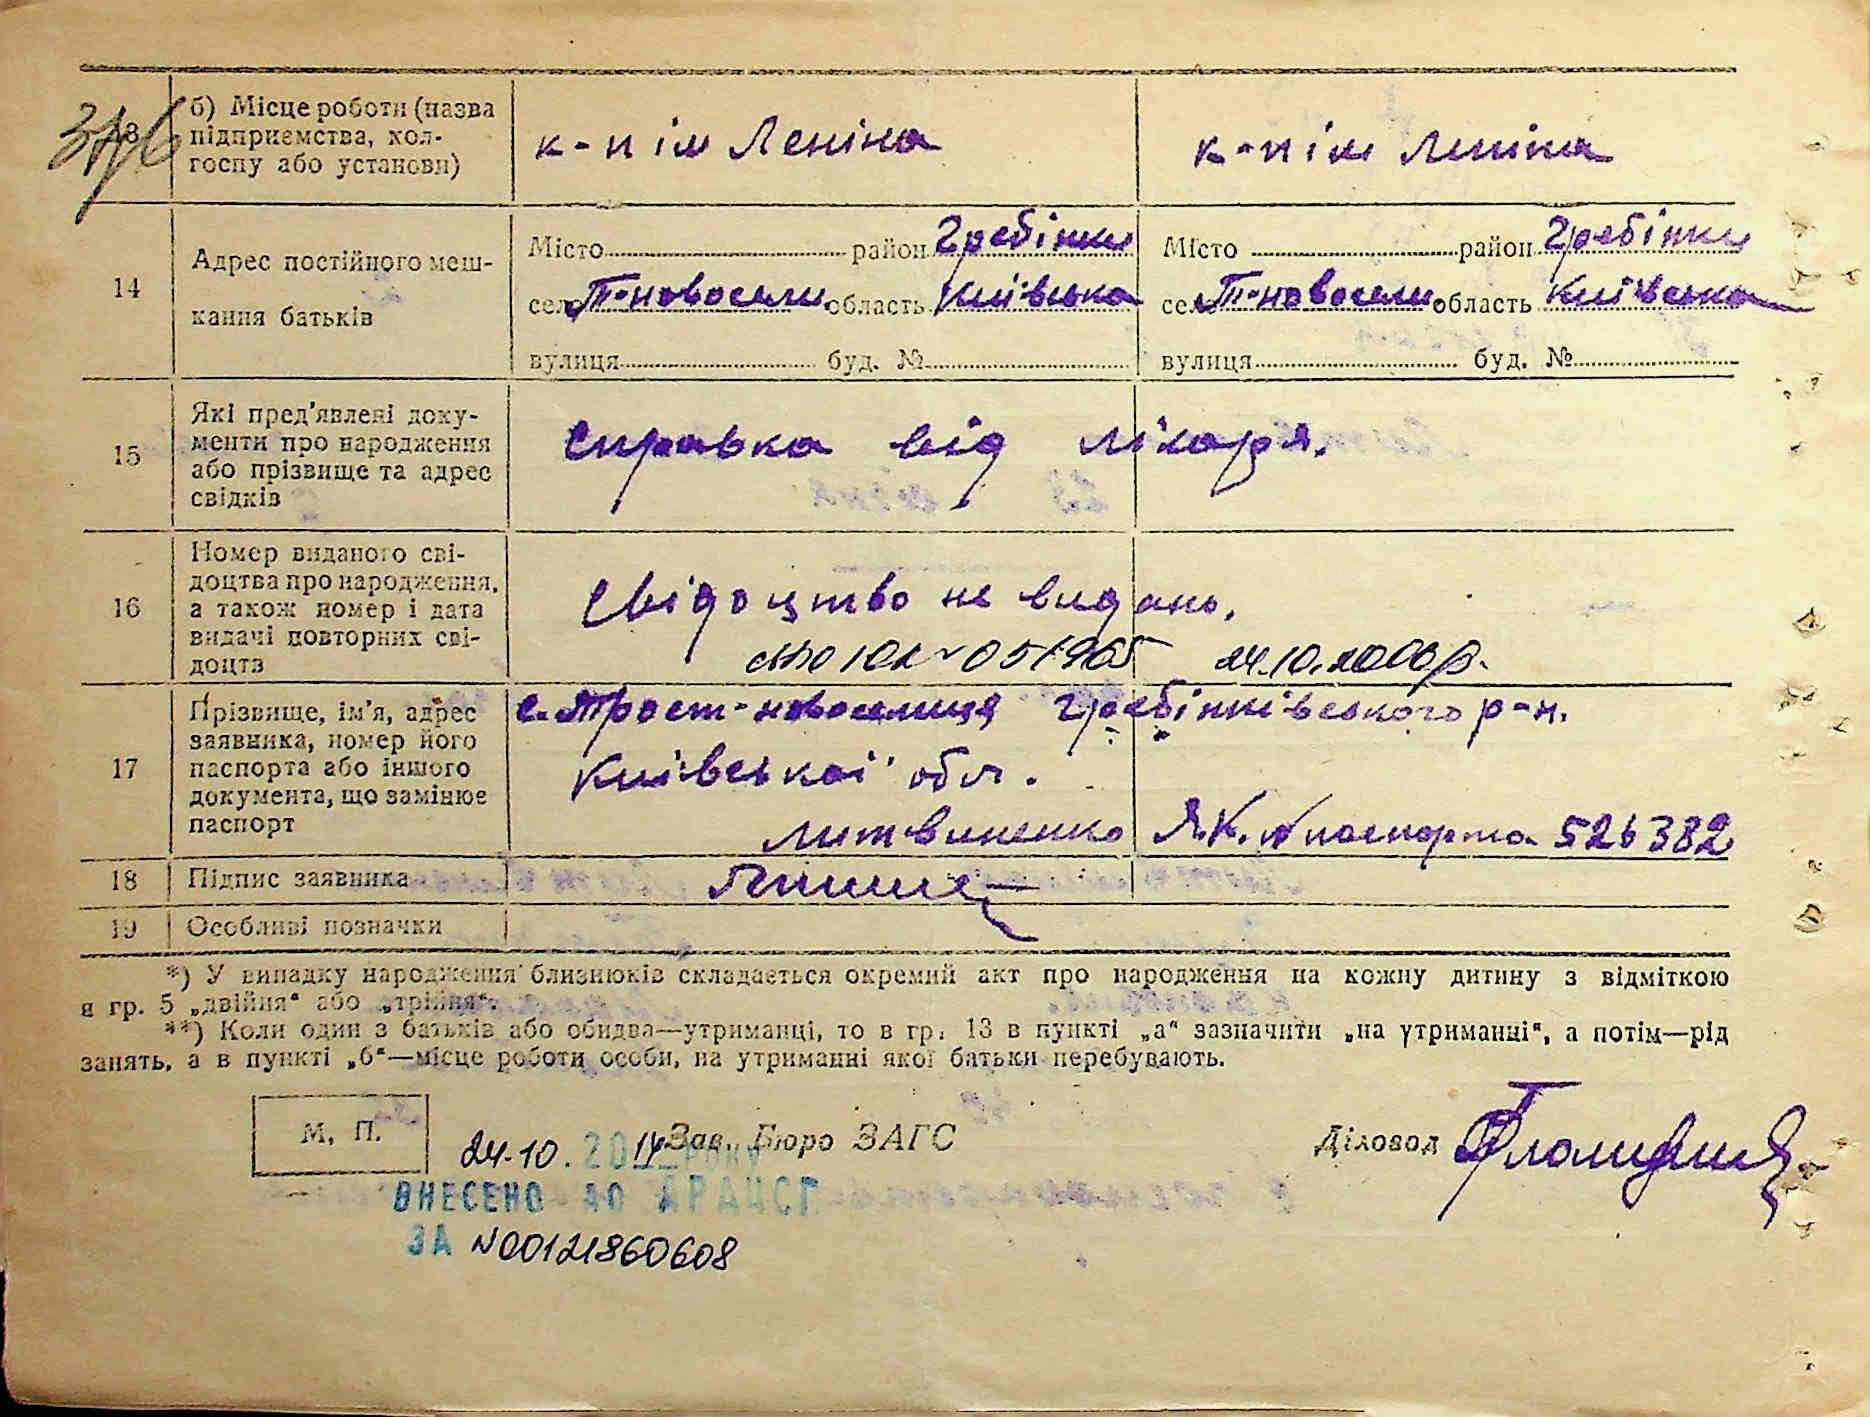 13 б) Місце роботи (назва
підприємства, кол-
госпу або установи)
к-п ім Леніна к-п ім Леніна
14 Адрес постійного меш-
кання батьків
Місто район Гребінки Місто район Гребінки
село Т-новосели область Київська село Т-новосели область Київська
вулиця буд. № вулиця буд. №
15 Які пред'явлені доку-
менти про народження
або прізвище та адрес
свідків
Справка від лікаря.
16 Номер виданого сві-
доцтва про народження,
а також номер і дата
видачі повторних сві-
доцтв
Свідоцтво не видано.
051965 24.10.2000р.
17 Прізвище, ім'я, адрес
заявника, номер його
паспорта або іншого
документа, що замінює
паспорт
с. Трост-новоселиця Гребінківського р-н.
Київської обл.
Литвиненко Я.К. № паспорта 526382
18 Підпис заявника
19 Особливі позначки
*) У випадку народження близнюків складається окремий акт про народження на кожну дитину з відміткою
в гр. 5 „двійня“ або „трійня“.
**) Коли один з батьків або обидва—утриманці, то в гр. 13 в пункті „а“ зазначити „на утриманні“, а потім—рід
занять, а в пункті „б“—місце роботи особи, на утриманні якої батьки перебувають.
М. П. Зав. Бюро ЗАГС Діловод
24.10. 2014 року
ВНЕСЕНО ДО ДРАЦСГ
ЗА №00121860608